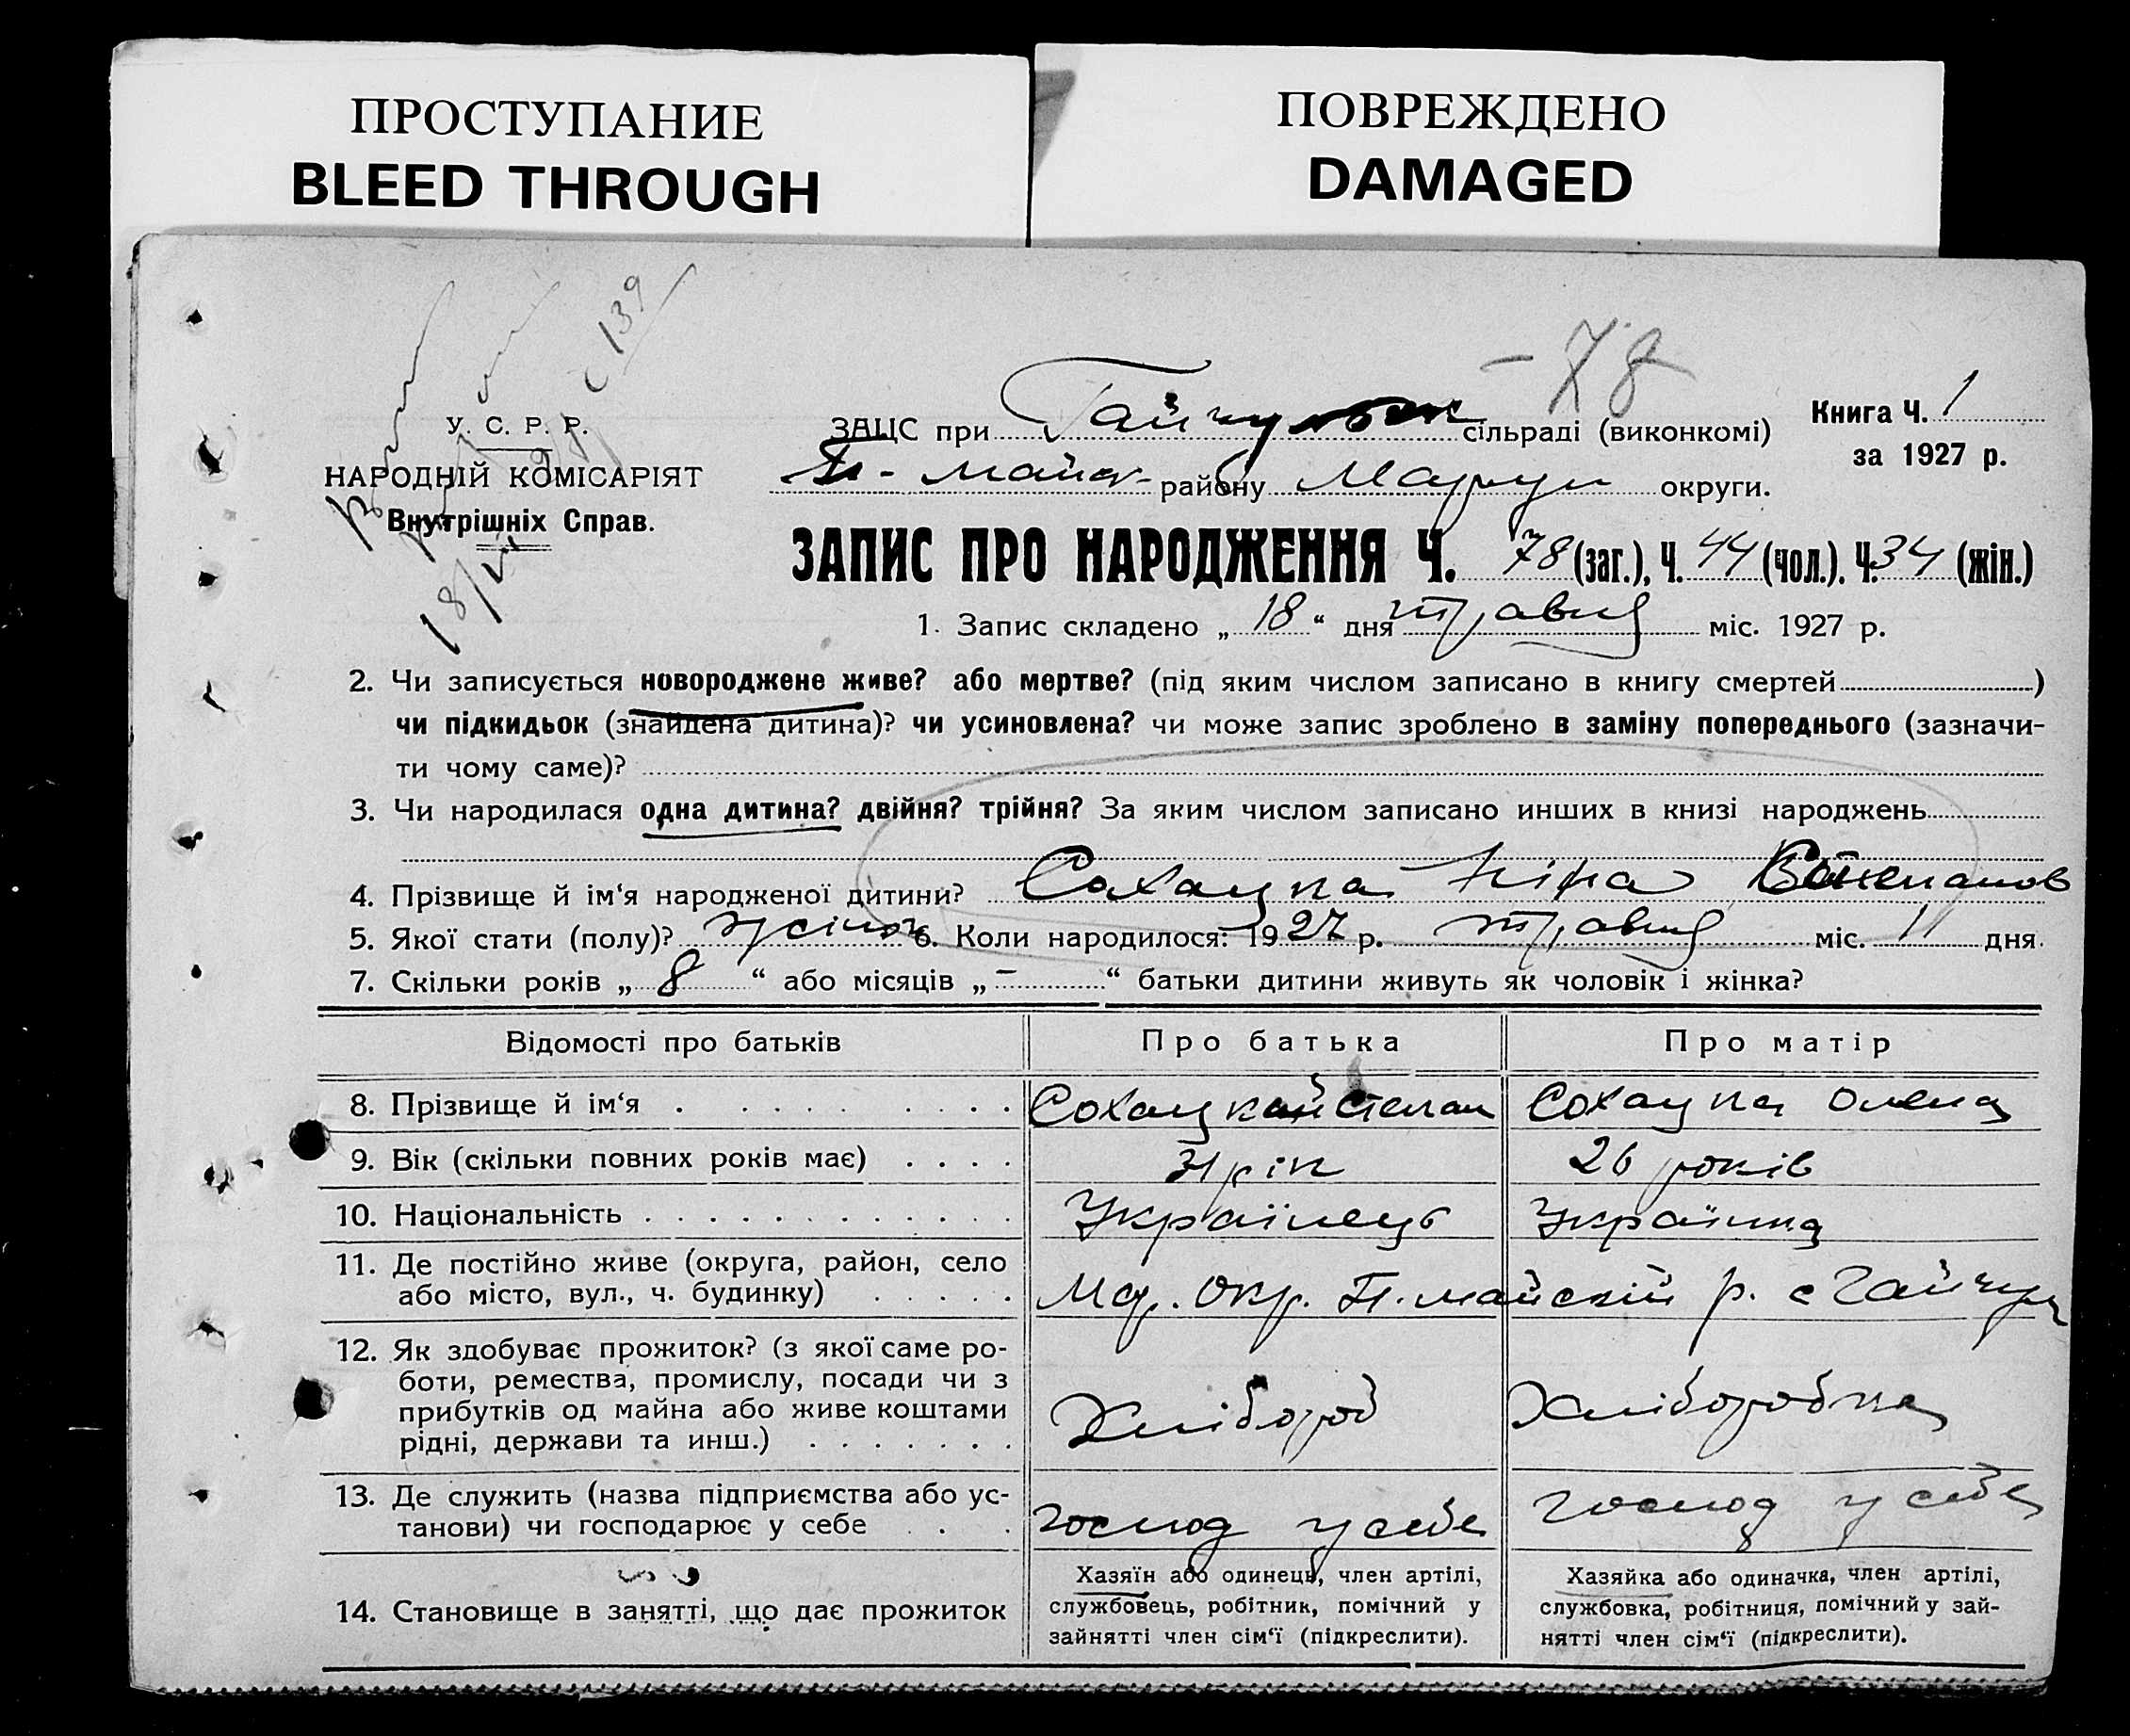 ПРОСТУПАНИЕ
BLEED THROUGH
ПОВРЕЖДЕНО
DAMAGED
139
- 78
У. С. Р. Р.
НАРОДНІЙ КОМІСАРІЯТ
Внутрішніх Справ.
18/VI
ЗАЦС при Гайчульск сільраді (виконкомі)
П-майск району Маріуп округи.
Книга Ч. 1
за 1927 р.
ЗАПИС ПРО НАРОДЖЕННЯ Ч. 78 (заг.), Ч. 44 (чол.). Ч. 34 (жін.)
1. Запис складено „ 18 “ дня травня міс. 1927 р.
2. Чи записується новороджене живе? або мертве? (під яким числом записано в книгу смертей )
чи підкидьок (знайдена дитина)? чи усиновлена? чи може запис зроблено в заміну попереднього (зазначи-
ти чому саме)?
3. Чи народилася одна дитина? двійня? трійня? За яким числом записано инших в книзі народжень
4. Прізвище й ім‘я народженої дитини? Сохацка Ніна Степанов
5. Якої стати (полу)? жіноч 6. Коли народилося: 1927 р. травня міс. 11 дня.
7. Скільки років „ 8 “ або місяців „ – “ батьки дитини живуть як чоловік і жінка?
Відомості про батьків Про батька Про матір
8. Прізвище й ім‘я Сохацкий Степан Сохацка Олена
9. Вік (скільки повних років має) 31 рік 26 років
10. Національність Українець Українка
11. Де постійно живе (округа, район, село
або місто, вул., ч. будинку) Мар. Окр. П.майский р. с Гайчул
12. Як здобуває прожиток? (з якої саме ро-
боти, ремества, промислу, посади чи з
прибутків од майна або живе коштами
рідні, держави та инш.) Хлібороб Хліборобка
13. Де служить (назва підприємства або ус-
танови) чи господарює у себе господ у себе господ у себе
14. Становище в занятті, що дає прожиток
Хазяїн або одинець, член артілі,
службовець, робітник, помічний у
зайнятті член сім‘ї (підкреслити).
Хазяйка або одиначка, член артілі,
службовка, робітниця, помічний у зай-
нятті член сім‘ї (підкреслити).